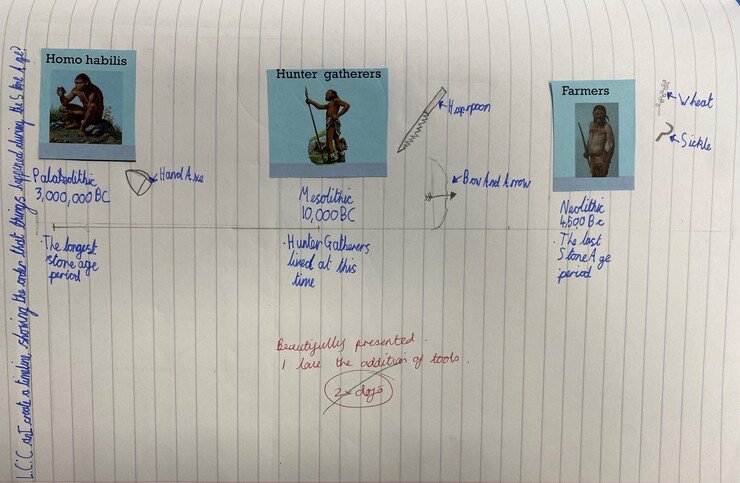 L.C: Can I create a timeline showing the order that things happened during the Stone Age?
Homo habilis
Palaeolithic
3,000,000 BC
Hand Axe
· The longest
stone age
period
Hunter gatherers
Harpoon
Bow And Arrow
Mesolithic
10,000 BC
· Hunter Gatherers
lived at this
time
Farmers
Wheat
Sickle
Neolithic
4,500 BC
· The last
Stone Age
period
Beautifully presented.
I love the addition of tools.
2x dojo